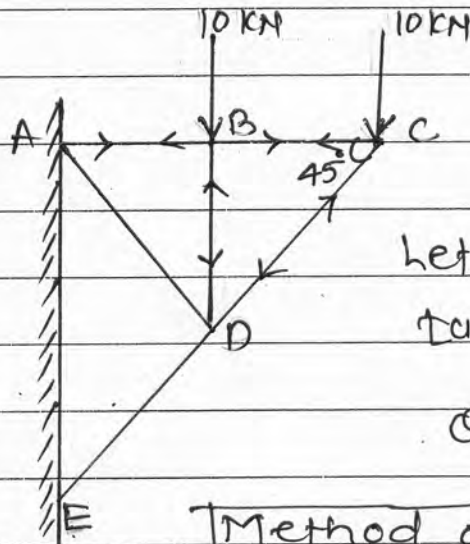 10 KN 10 KN
A B C
45°
Let
D
E
Method